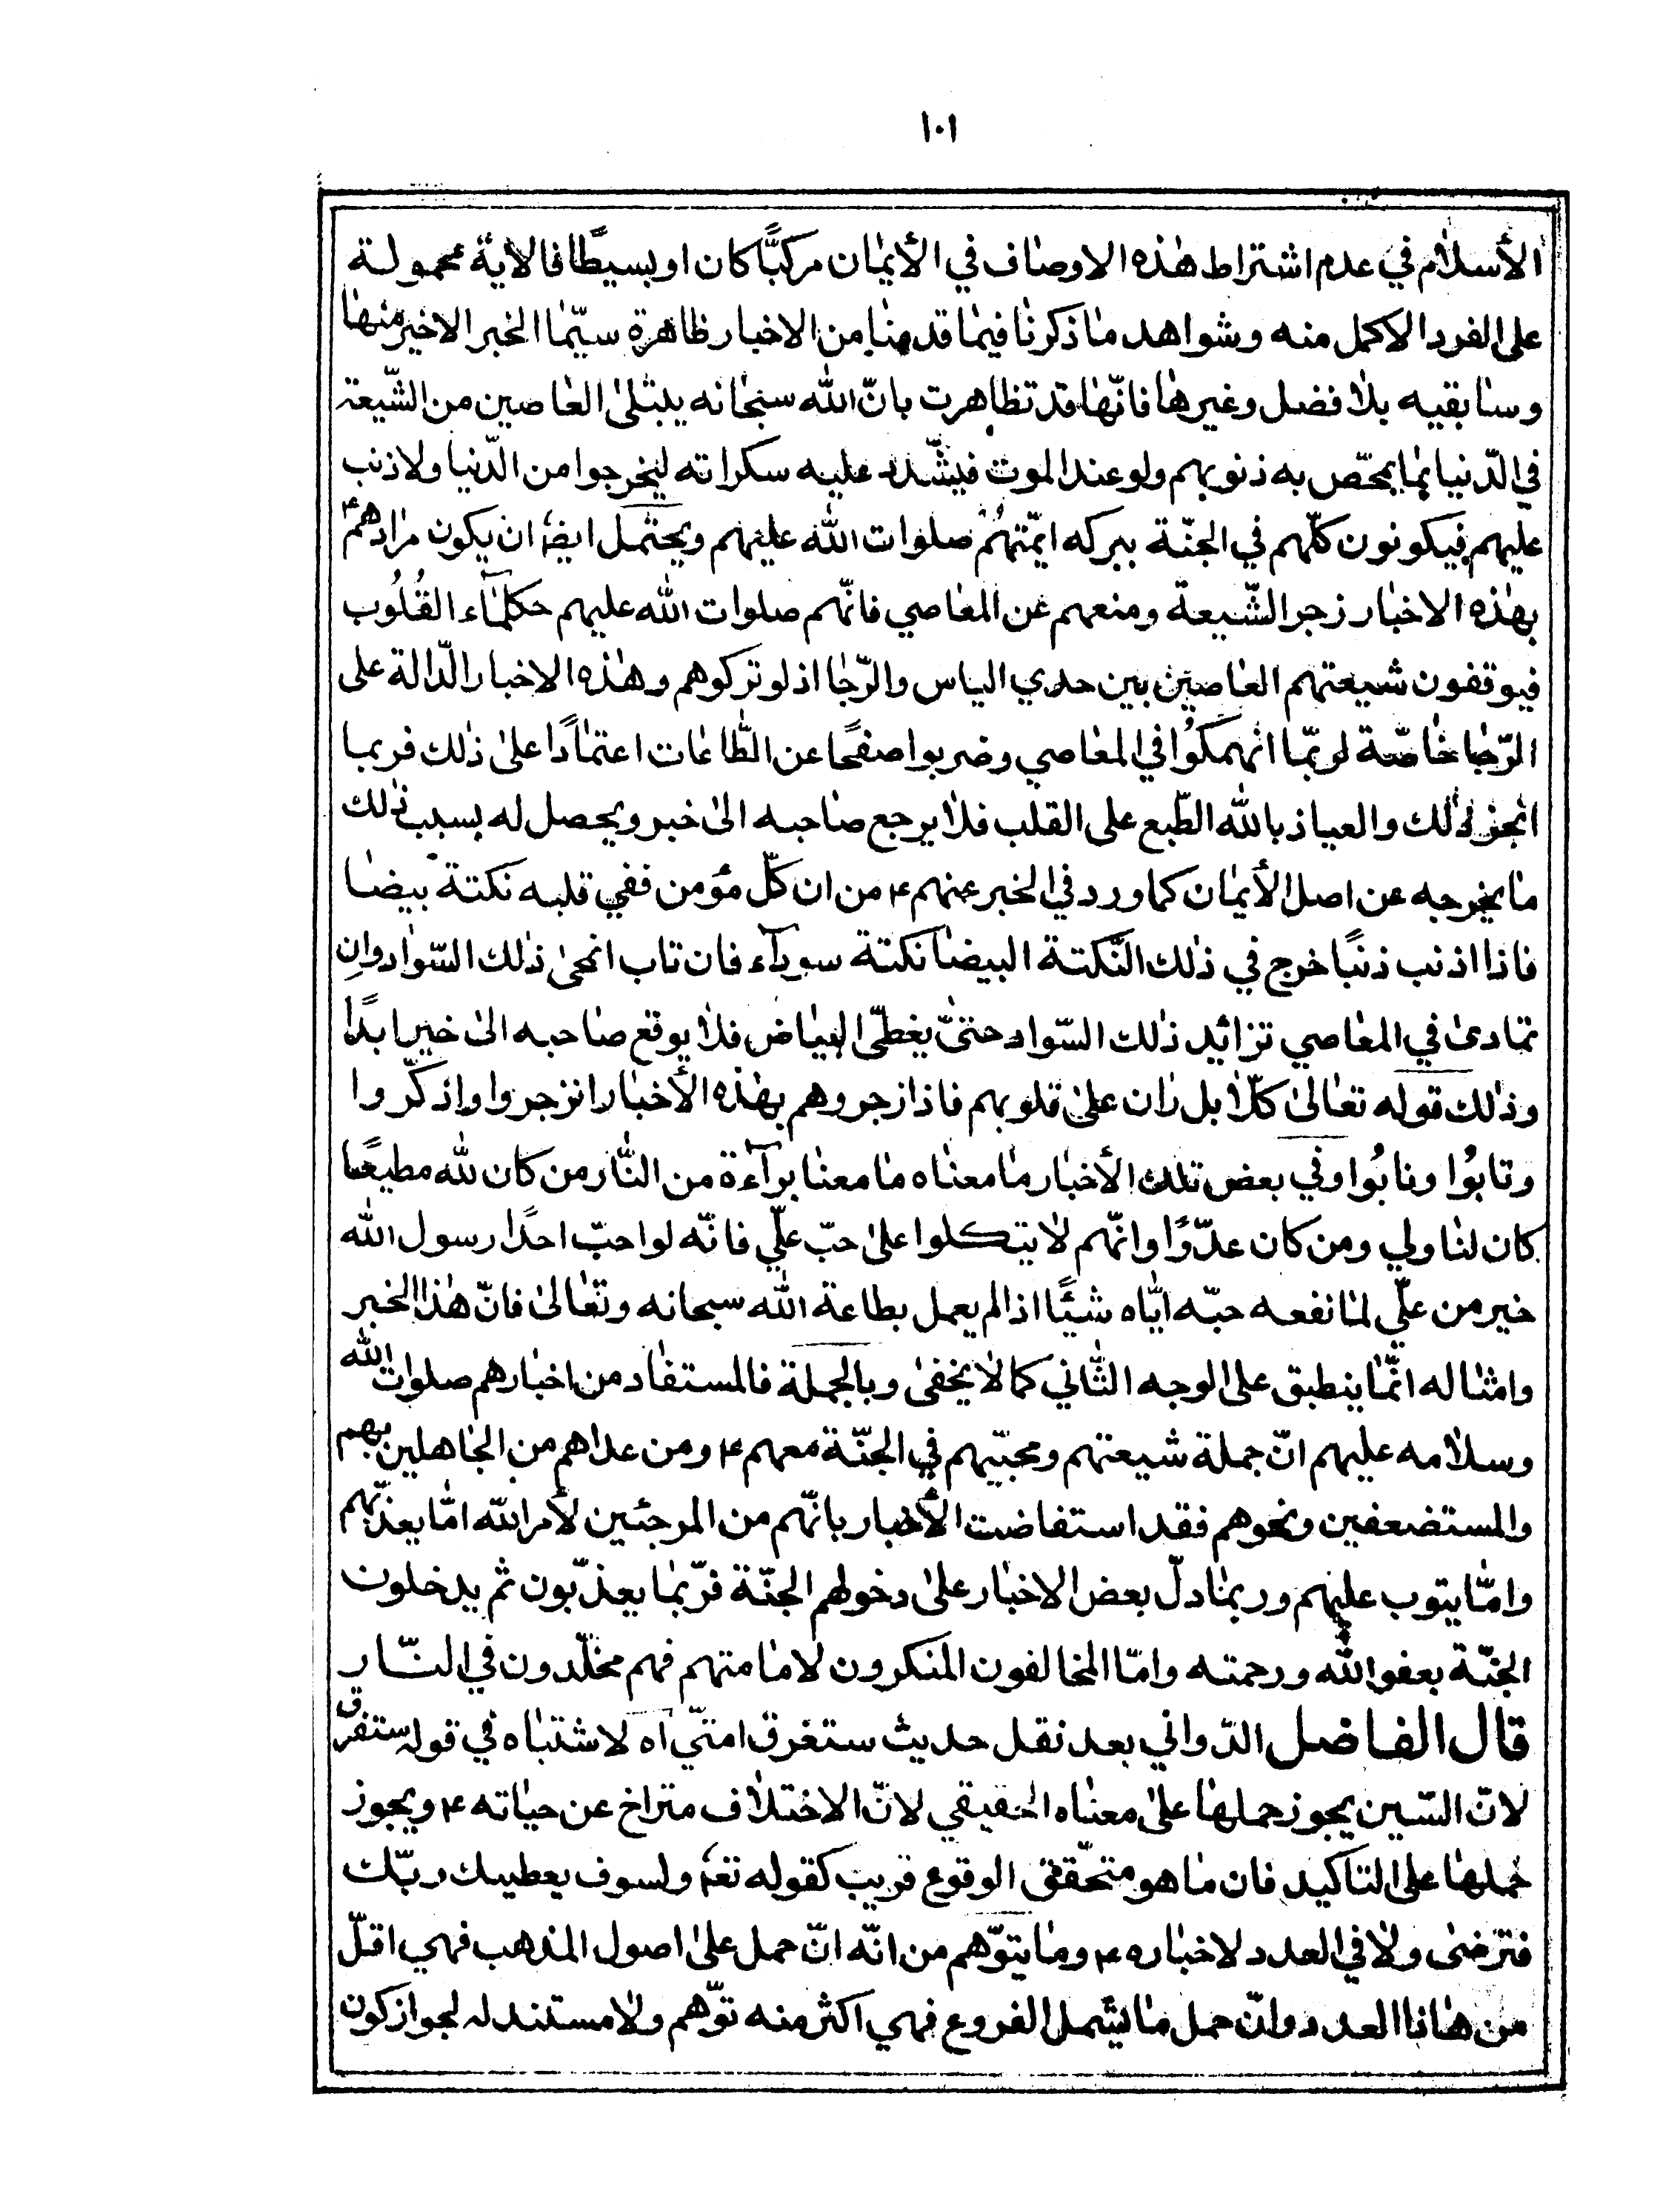 ١٠١
الأسلام في عدم اشتراط هذه الاوصاف في الأيمان مركبًّا كان او بسيطًا فالاية محمولة
على الفرد الاكمل منه وشواهد ما ذكرنا فيما قدمنا من الاخبار ظاهرة سيّما الخبر الاخير منها
وسابقيه بلا فضل وغيرها فانّها قد تظاهرت بانّ الله سبحانه يبتلى العاصين من الشّيعة
في الدّنيا بما يمحّص به ذنوبهم ولو عند الموت فيشّدد عليه سكراته ليخرجوا من الدّنيا ولا ذنب
عليهم فيكونون كلّهم في الجنّة ببركه ائمّتهُم صلوات الله عليهم ويحتمل ايضا ان يكون مرادهم ع
بهذه الاخبار زجر الشّيعة ومنعهم عن المعاصي فانّهم صلوات الله عليهم حكمآء القُلُوب
فيوقفون شيعتهم العاصين بين حدي الياس والرّجا اذ لو تركوهم وهذه الاخبار الدّالة على
الرّجا خاصّة لربّما انهمكوُا في المعاصي وضربوا صفحًا عن الطّاعات اعتمادًا على ذلك فربما
انجز ذلك والعياذ بالله الطّبع على القلب فلا يرجع صاحبه الى خبر ويحصل له بسبب ذلك
ما يخرجه عن اصل الأيمان كما ورد في الخبر عنهم ع من ان كلّ مؤمن ففي قلبه نكتة بيضا
فاذا اذنب ذنبًا خرج في ذلك النّكتة البيضا نكتة سودآء فان تاب انمحى ذلك السّواد وان
تمادى في المعاصي تزائد ذلك السّواد حتىّ يغطّى البياض فلا يوقع صاحبه الى خير ابدًا
وذلك قوله تعالى كلّا بل ران على قلوبهم فاذا زجروهم بهذه الأخبار انزجروا واذكّروا
وتابوُا ونابوُا وفي بعض تلك الأخبار ما معناه ما معنا برآءة من النّار من كان لله مطيعًا
كان لنا ولي ومن كان عدّوًا وانّهم لا يتكلوا على حبّ علّي فانّه لو احبّ احدًا رسول الله
خير من علّي لما نفعه حبّه ايّاه شيئًا اذا لم يعمل بطاعة الله سبحانه وتعالى فانّ هذا الخبر
وامثاله انمّا ينطبق على الوجه الثّاني كما لا يخفى وبالجملة فالمستفاد من اخبارهم صلوات الله
وسلامه عليهم انّ جملة شيعتهم ومحبّيهم في الجنّة معهم ع ومن عداهم من الجاهلين بهم
والمستضعفين ونحوهم فقد استفاضت الأخبار بانّهم من المرجئين لأمر الله امّا يعذّبهم
وامّا يتوب عليهم وربما دلّ بعض الاخبار على دخولهم الجنّة فرّبما يعذّبون ثم يدخلون
الجنّة بعفو الله ورحمته وامّا المخالفون المنكرون لامامتهم فهم مخلّدون في النّار
قال الفاضل الدّواني بعد نقل حديث ستغرق امتّي اه لاشتباه في قوله ستفرق
لانّ السّين يجوز حملها على معناه الحقيقي لانّ الاختلاف متراخ عن حياته ع ويجوز
حملها على التاكيد فان ما هو متحّقق الوقوع قريب كقوله تع ولسوف يعطيك ربّك
فترضى ولا في العدد لاخباره ع وما يتوّهم من انّه انّ حمل على اصول المذهب فهي اقلّ
من هذا العدد وانّ حمل ما يشمل الفروع فهي اكثر منه توّهم ولا مستند له لجواز كون